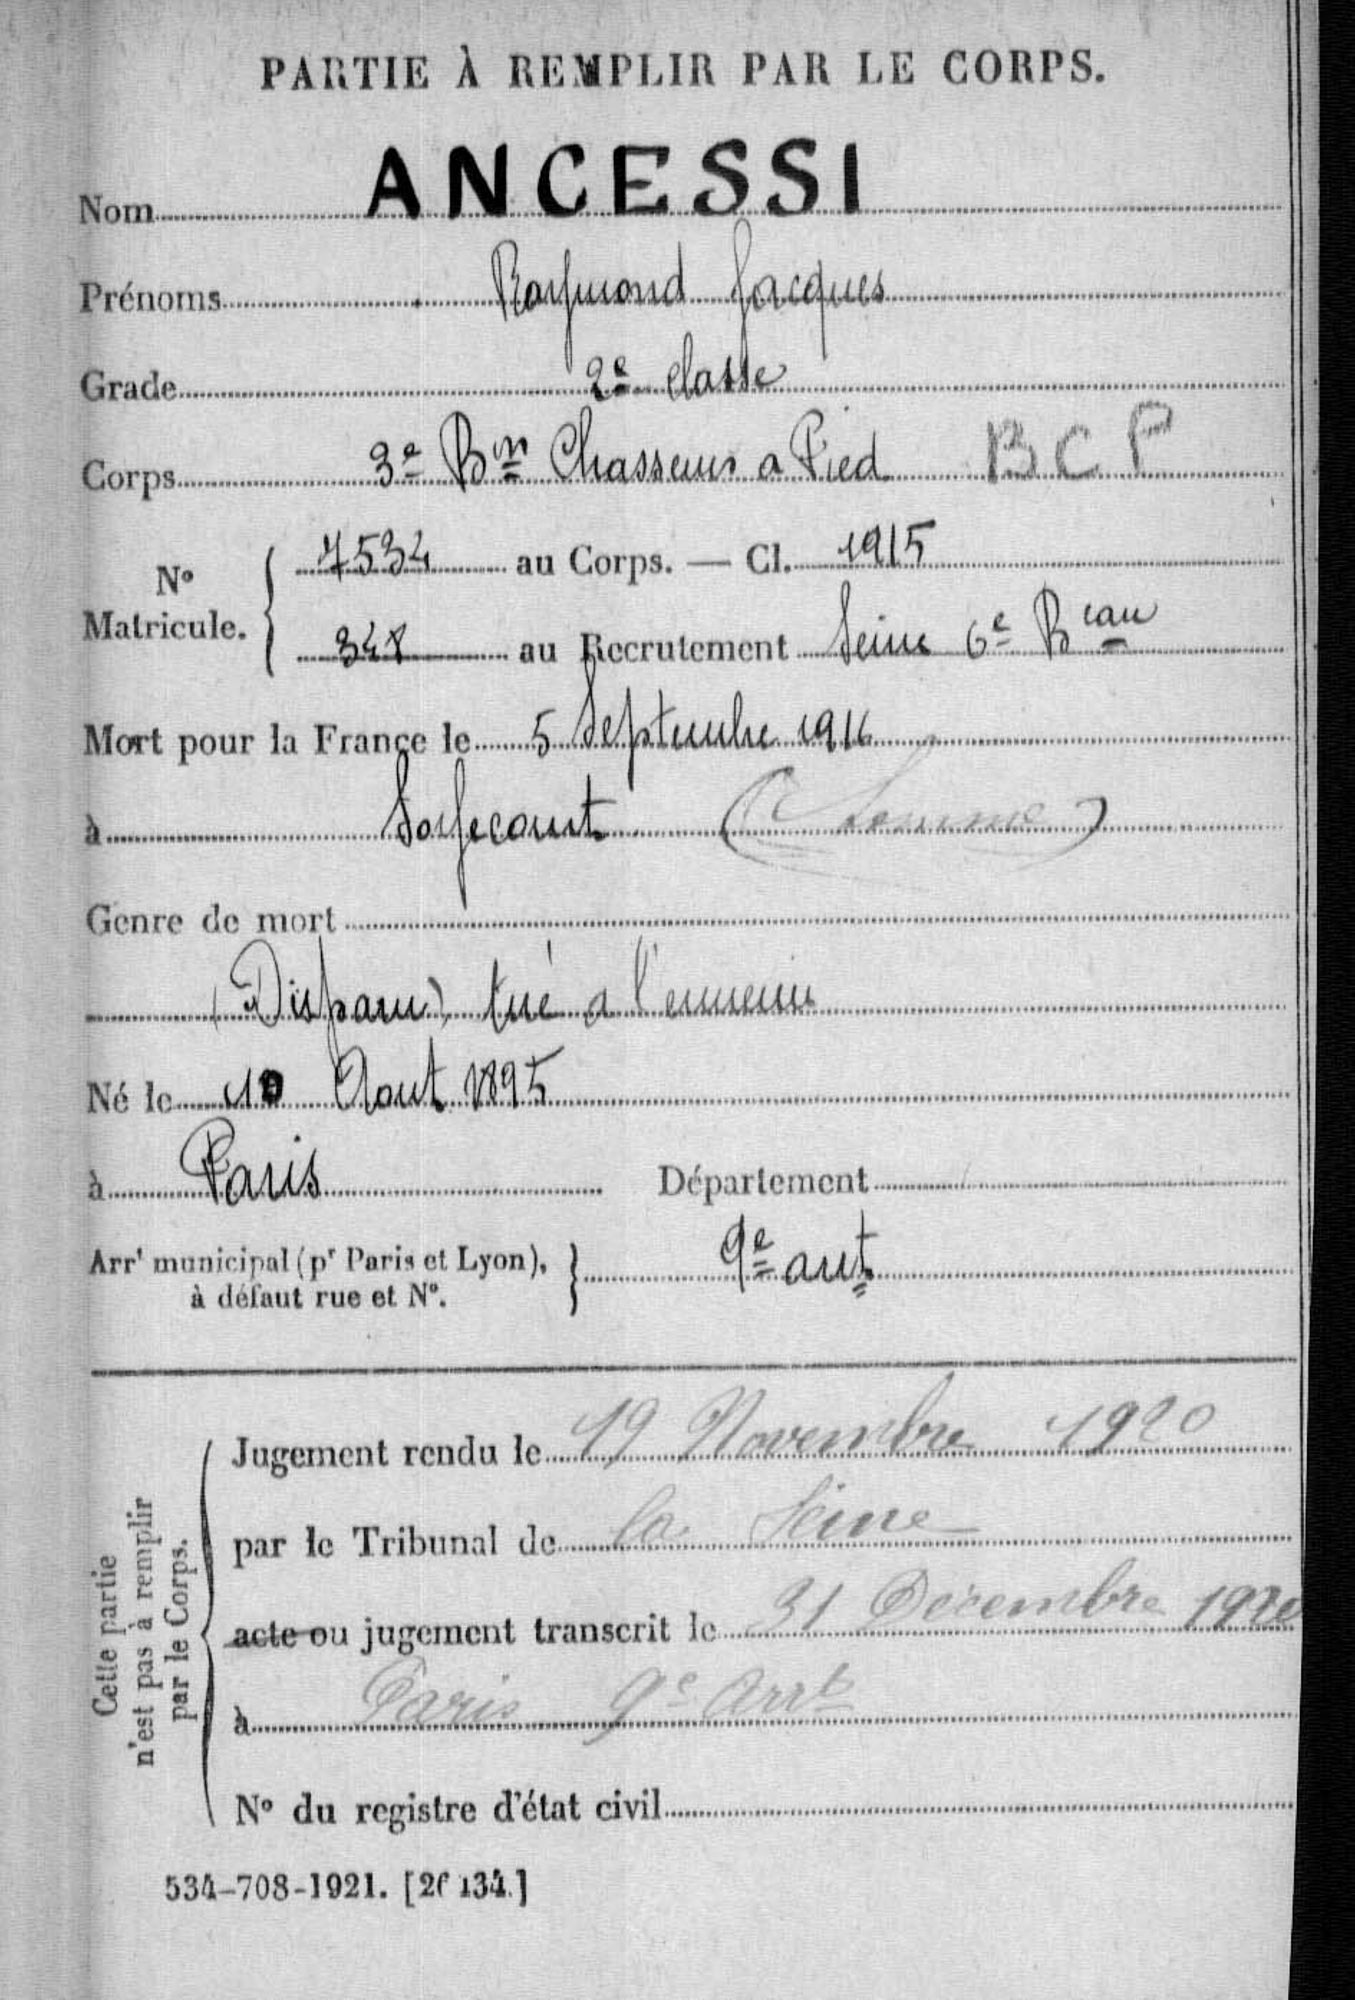 PARTIE À REMPLIR PAR LE CORPS.
Nom ANCESSI
Prénoms Raymond Jacques
Grade 2e classe
Corps 3e Bon Chasseurs a Pied BCP
No Matricule. { 7534 au Corps. — Cl. 1915
348 au Recrutement Seine 6e Beau
Mort pour la France le 5 Septembre 1916
à Soyecourt (Somme)
Genre de mort
(Disparu) tué a l'ennemi
Né le 10 Aout 1895
à Paris Département
Arrt municipal (pr Paris et Lyon), à défaut rue et No. } 9e arrt
Cette partie n'est pas à remplir par le Corps.
Jugement rendu le 19 Novembre 1920
par le Tribunal de la Seine
acte ou jugement transcrit le 31 Décembre 1920
à Paris 9e Arrt
No du registre d'état civil
534-708-1921. [26134.]